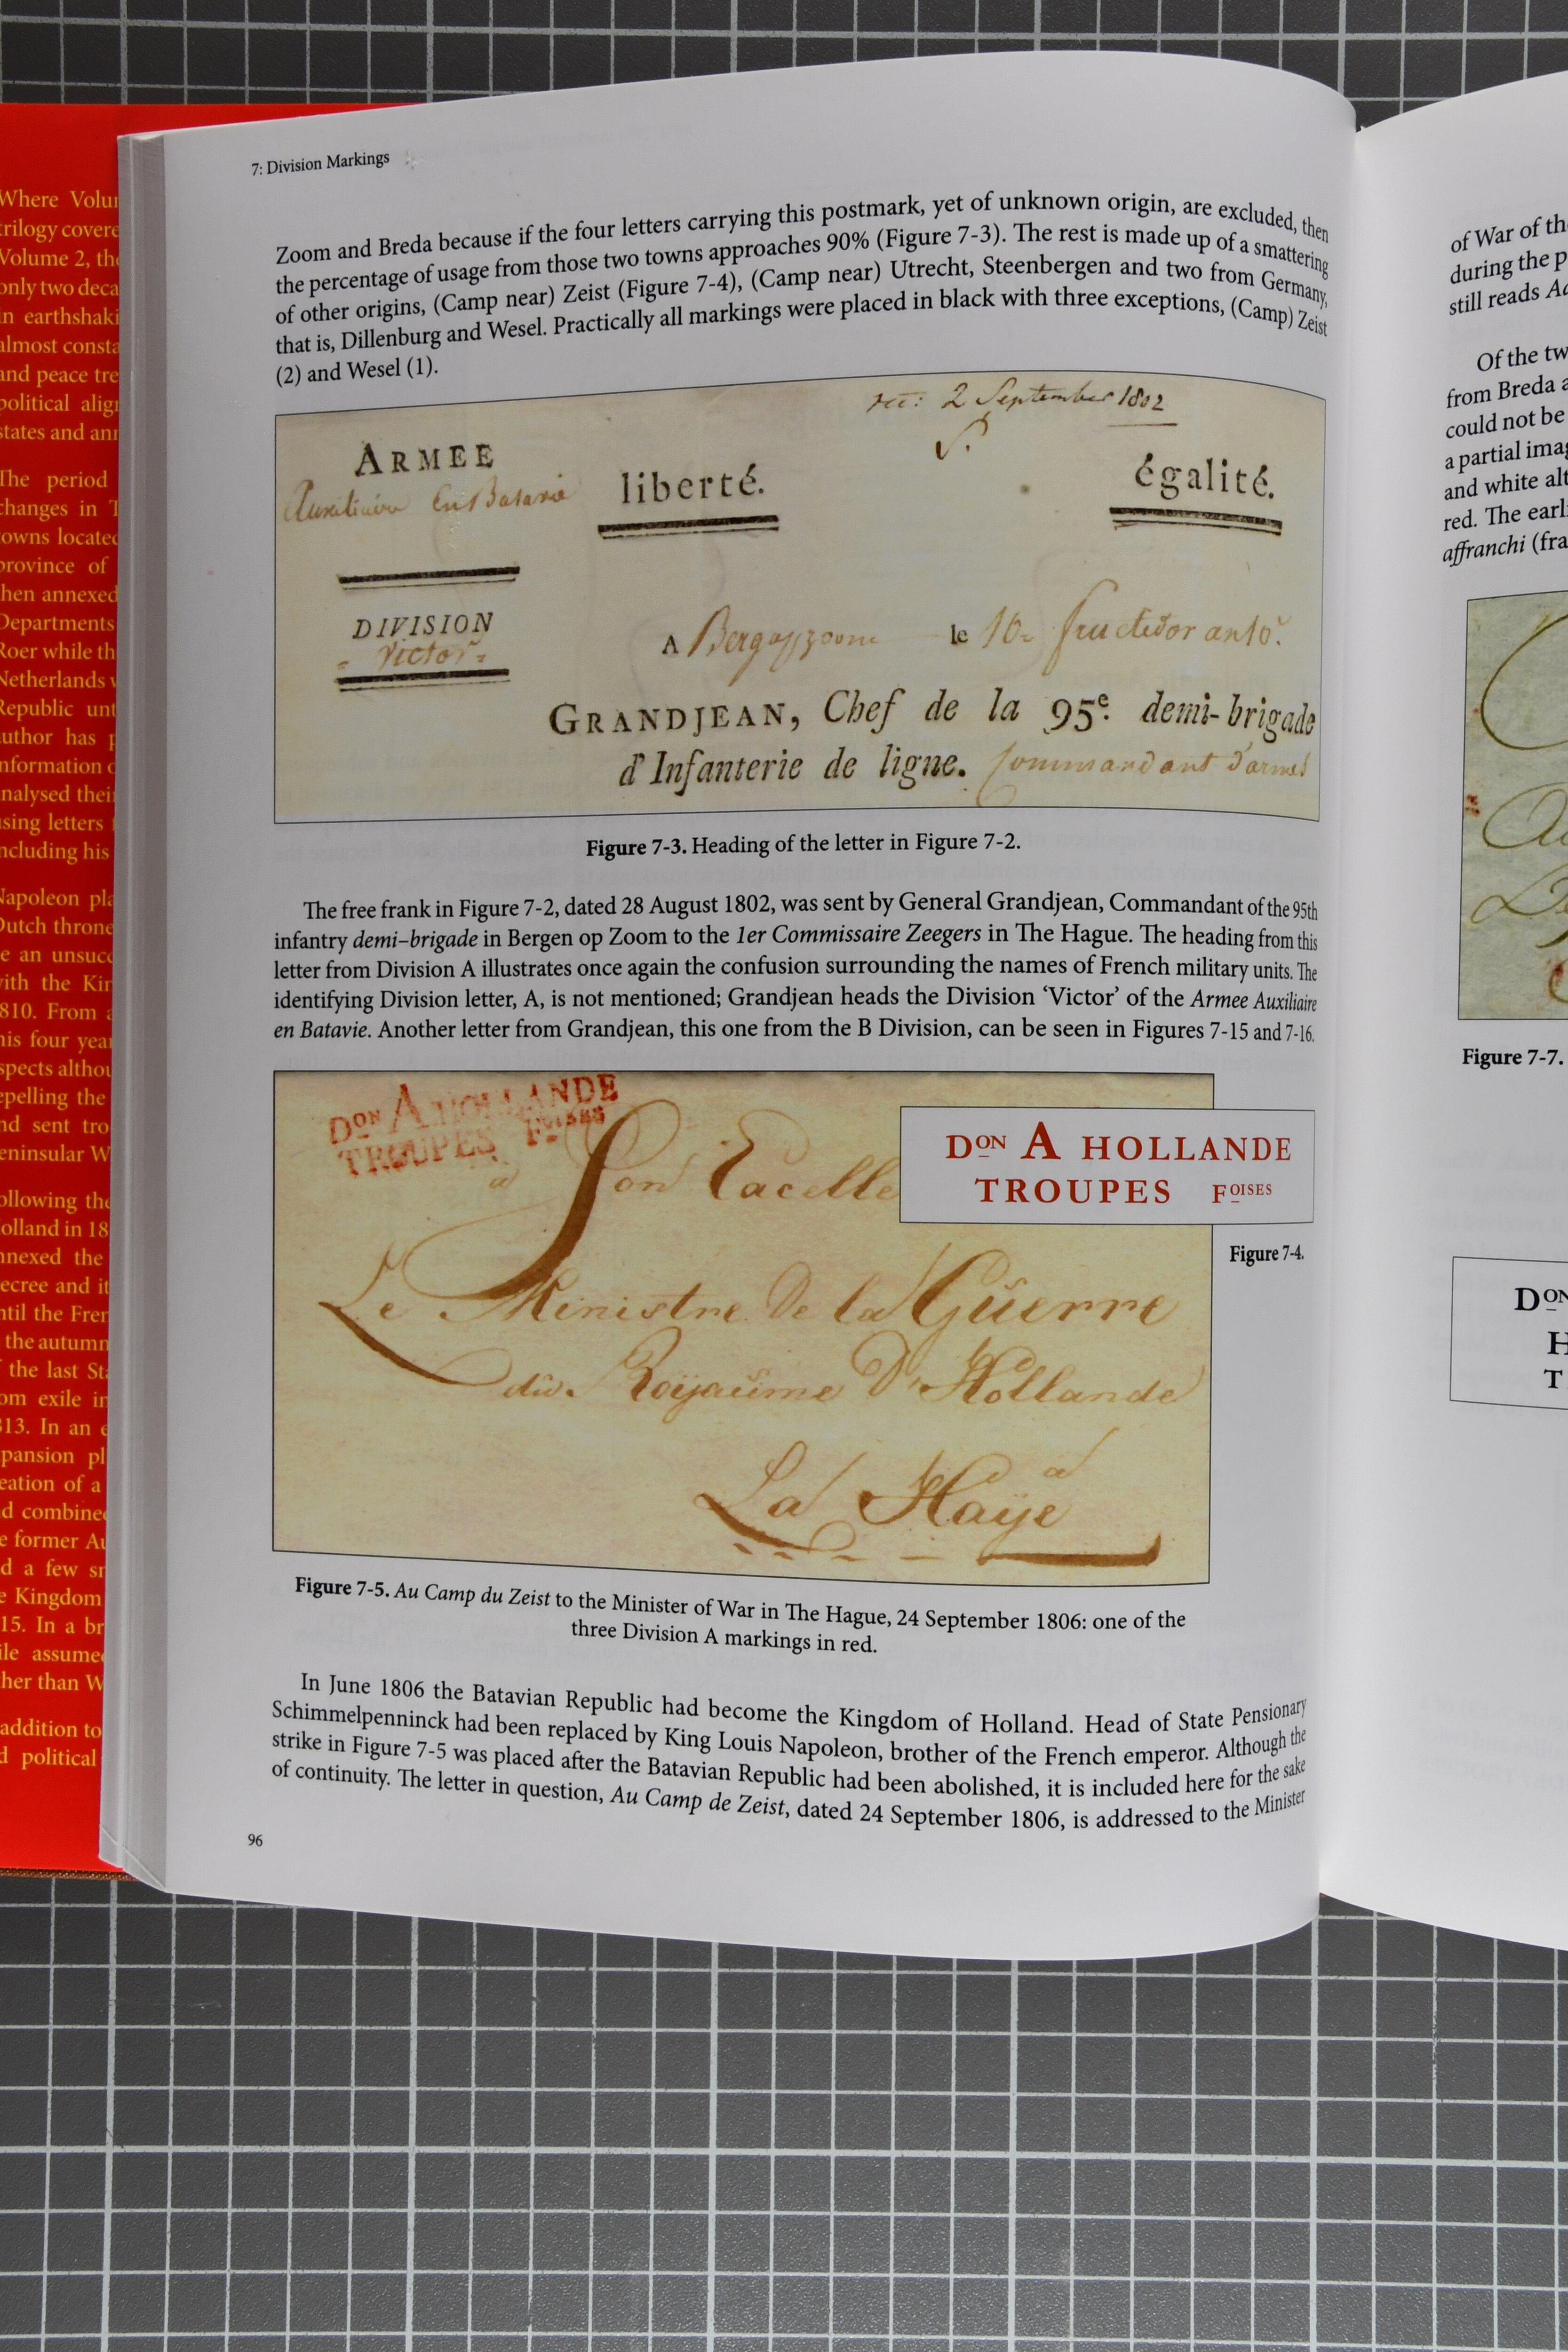 Where Volu
trilogy covere
Volume 2, the
only two deca
in earthshaki
almost consta
and peace tre
political alig
states and an
The period
changes in T
towns located
province of
then annexed
Departments
Roer while th
Netherlands
Republic unt
author has p
nformation o
nalysed thei
sing letters
ncluding his
Napoleon pla
Dutch throne
e an unsucc
with the Kin
810. From a
his four yea
spects althou
epelling the
nd sent tro
eninsular W
ollowing the
olland in 18
nnexed the
ecree and it
ntil the Fren
the autumn
the last Sta
om exile in
813. In an e
pansion pl
eation of a
d combine
e former Au
d a few sm
e Kingdom
15. In a br
ile assume
her than W
addition to
d political
7: Division Markings
Zoom and Breda because if the four letters carrying this postmark, yet of unknown origin, are excluded, then
the percentage of usage from those two towns approaches 90% (Figure 7-3). The rest is made up of a smattering
of other origins, (Camp near) Zeist (Figure 7-4), (Camp near) Utrecht, Steenbergen and two from Germany,
that is, Dillenburg and Wesel. Practically all markings were placed in black with three exceptions, (Camp) Zeist
(2) and Wesel (1).
rec: 2 September 1802
ARMEE
Auxiliaire En Batavie
liberté.
égalité.
DIVISION
Victor
A Bergopzoom le 10 fructidor an 10.
GRANDJEAN, Chef de la 95e. demi-brigade
d'Infanterie de ligne. Commandant d'armes
Figure 7-3. Heading of the letter in Figure 7-2.
The free frank in Figure 7-2, dated 28 August 1802, was sent by General Grandjean, Commandant of the 95th
infantry demi–brigade in Bergen op Zoom to the 1er Commissaire Zeegers in The Hague. The heading from this
letter from Division A illustrates once again the confusion surrounding the names of French military units. The
identifying Division letter, A, is not mentioned; Grandjean heads the Division ‘Victor’ of the Armee Auxiliaire
en Batavie. Another letter from Grandjean, this one from the B Division, can be seen in Figures 7-15 and 7-16.
DON A HOLLANDE
TROUPES FOISES
a Son Excelle
DON A HOLLANDE
TROUPES FOISES
Figure 7-4.
Le Ministre De la Guerre
du Royaume D'Hollande
a
La Haye
Figure 7-5. Au Camp du Zeist to the Minister of War in The Hague, 24 September 1806: one of the
three Division A markings in red.
In June 1806 the Batavian Republic had become the Kingdom of Holland. Head of State Pensionary
Schimmelpenninck had been replaced by King Louis Napoleon, brother of the French emperor. Although the
strike in Figure 7-5 was placed after the Batavian Republic had been abolished, it is included here for the sake
of continuity. The letter in question, Au Camp de Zeist, dated 24 September 1806, is addressed to the Minister
96
of War of th
during the p
still reads Ad
Of the tw
from Breda a
could not be
a partial imag
and white alt
red. The earl
affranchi (fra
Figure 7-7.
DON
H
T